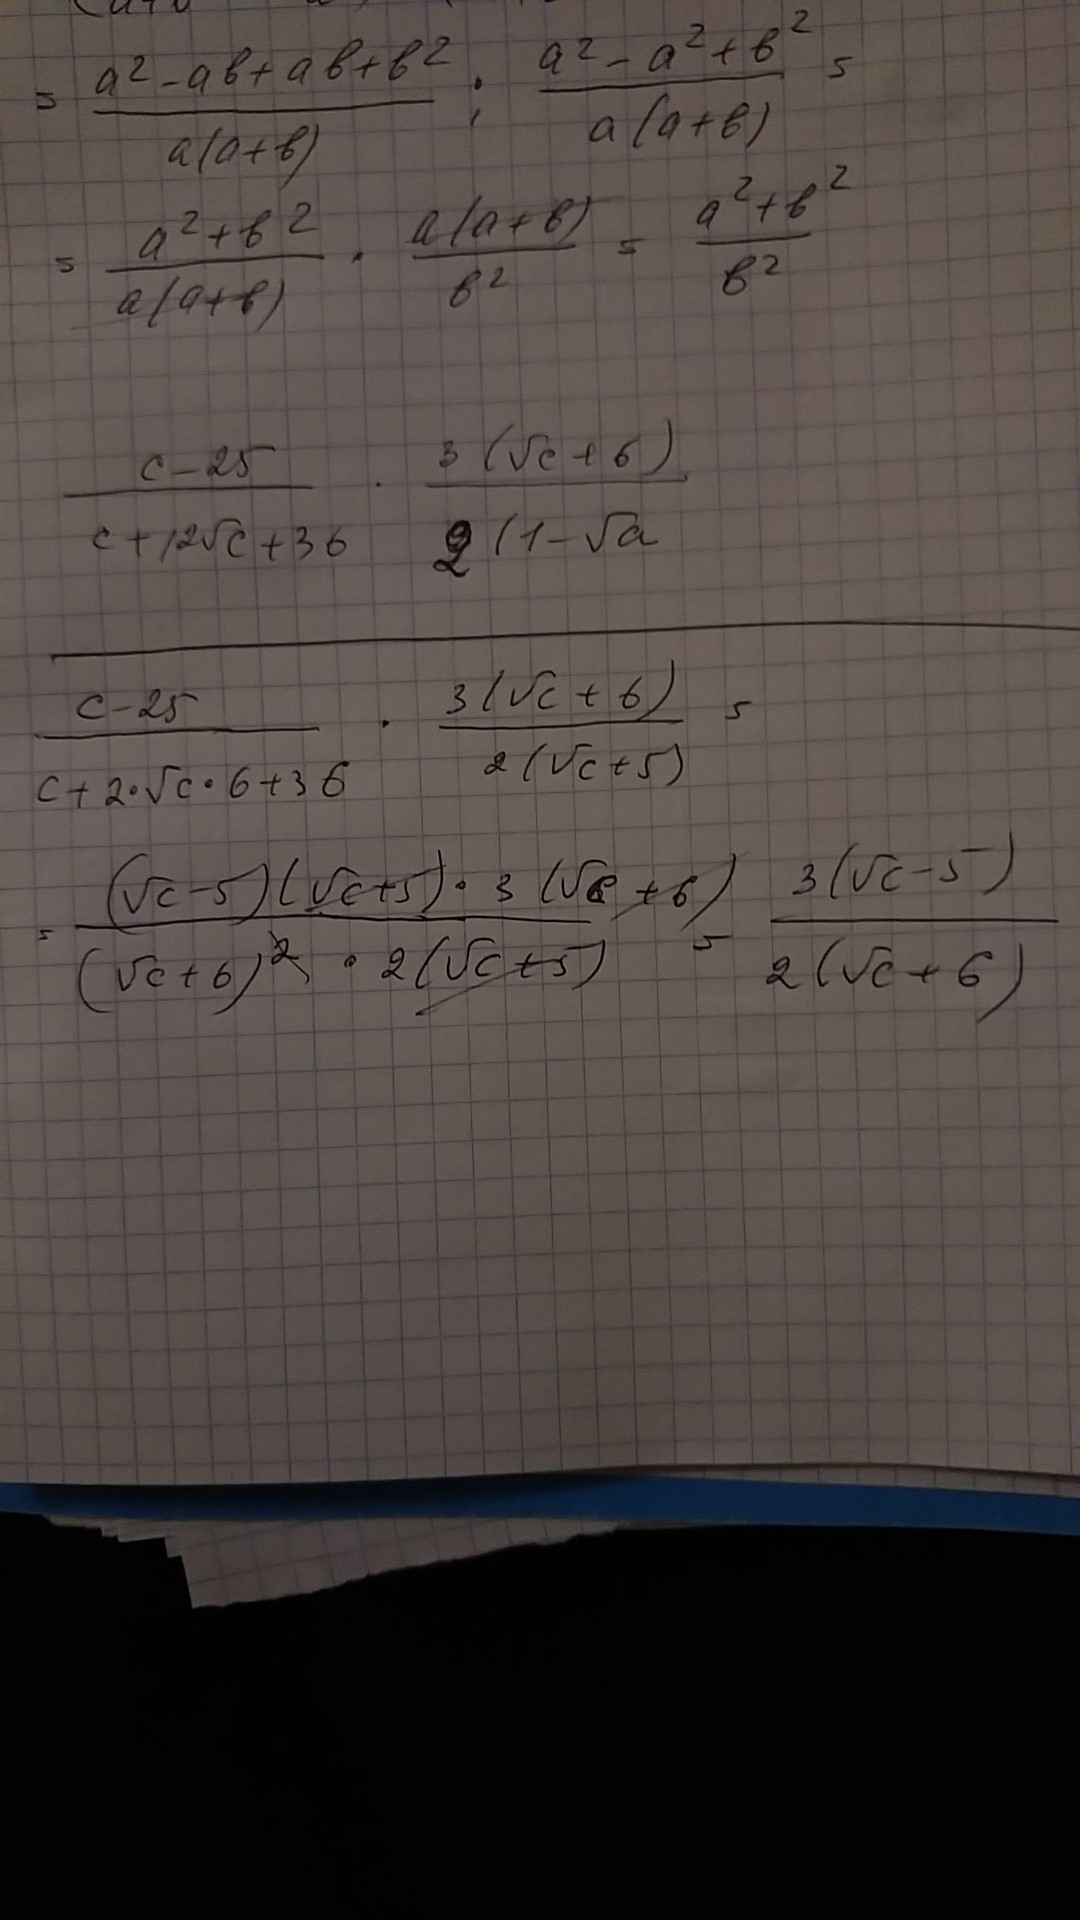 = a² - aв + aв + в² / a(a+в) : a² - a² + в² / a(a+в) =
= a² + в² / a(a+в) · a(a+в) / в² = a² + в² / в²
c - 25 / c + 12√c + 36 · 3(√c + 6) / 2(1 - √a
c - 25 / c + 2·√c·6 + 36 · 3(√c + 6) / 2(√c + 5) =
= (√c - 5)(√c + 5) · 3(√c + 6) / (√c + 6)² · 2(√c + 5) = 3(√c - 5) / 2(√c + 6)